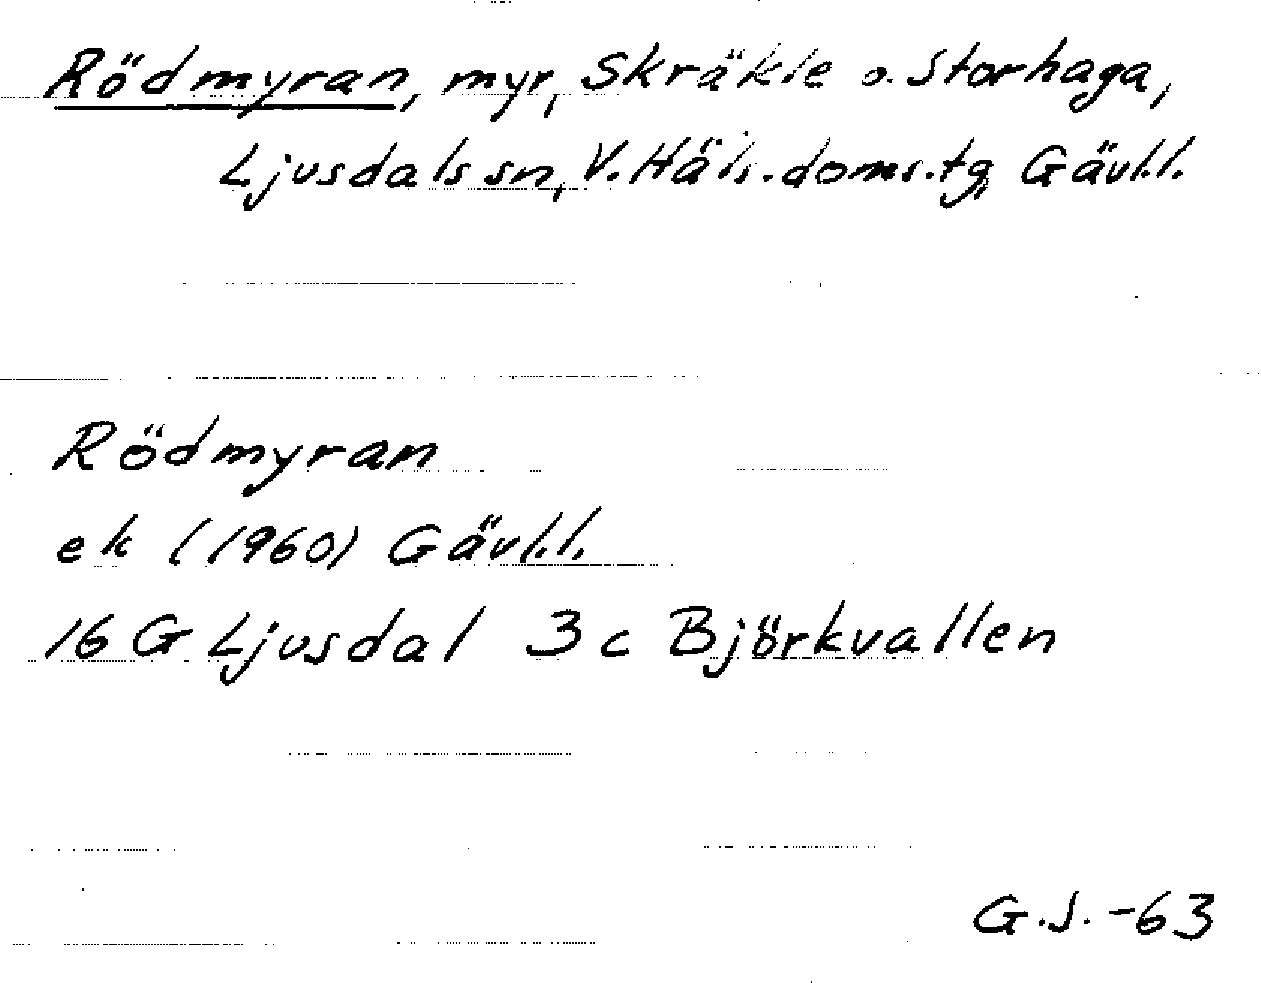 Rödmyran, myr, Skräkle o. Storhaga,
Ljusdals sn, V. Häls. doms. tg, Gävl.l.
Rödmyran
ek (1960) Gävl.l.
16 G Ljusdal 3 c Björkvallen
G.S. -63